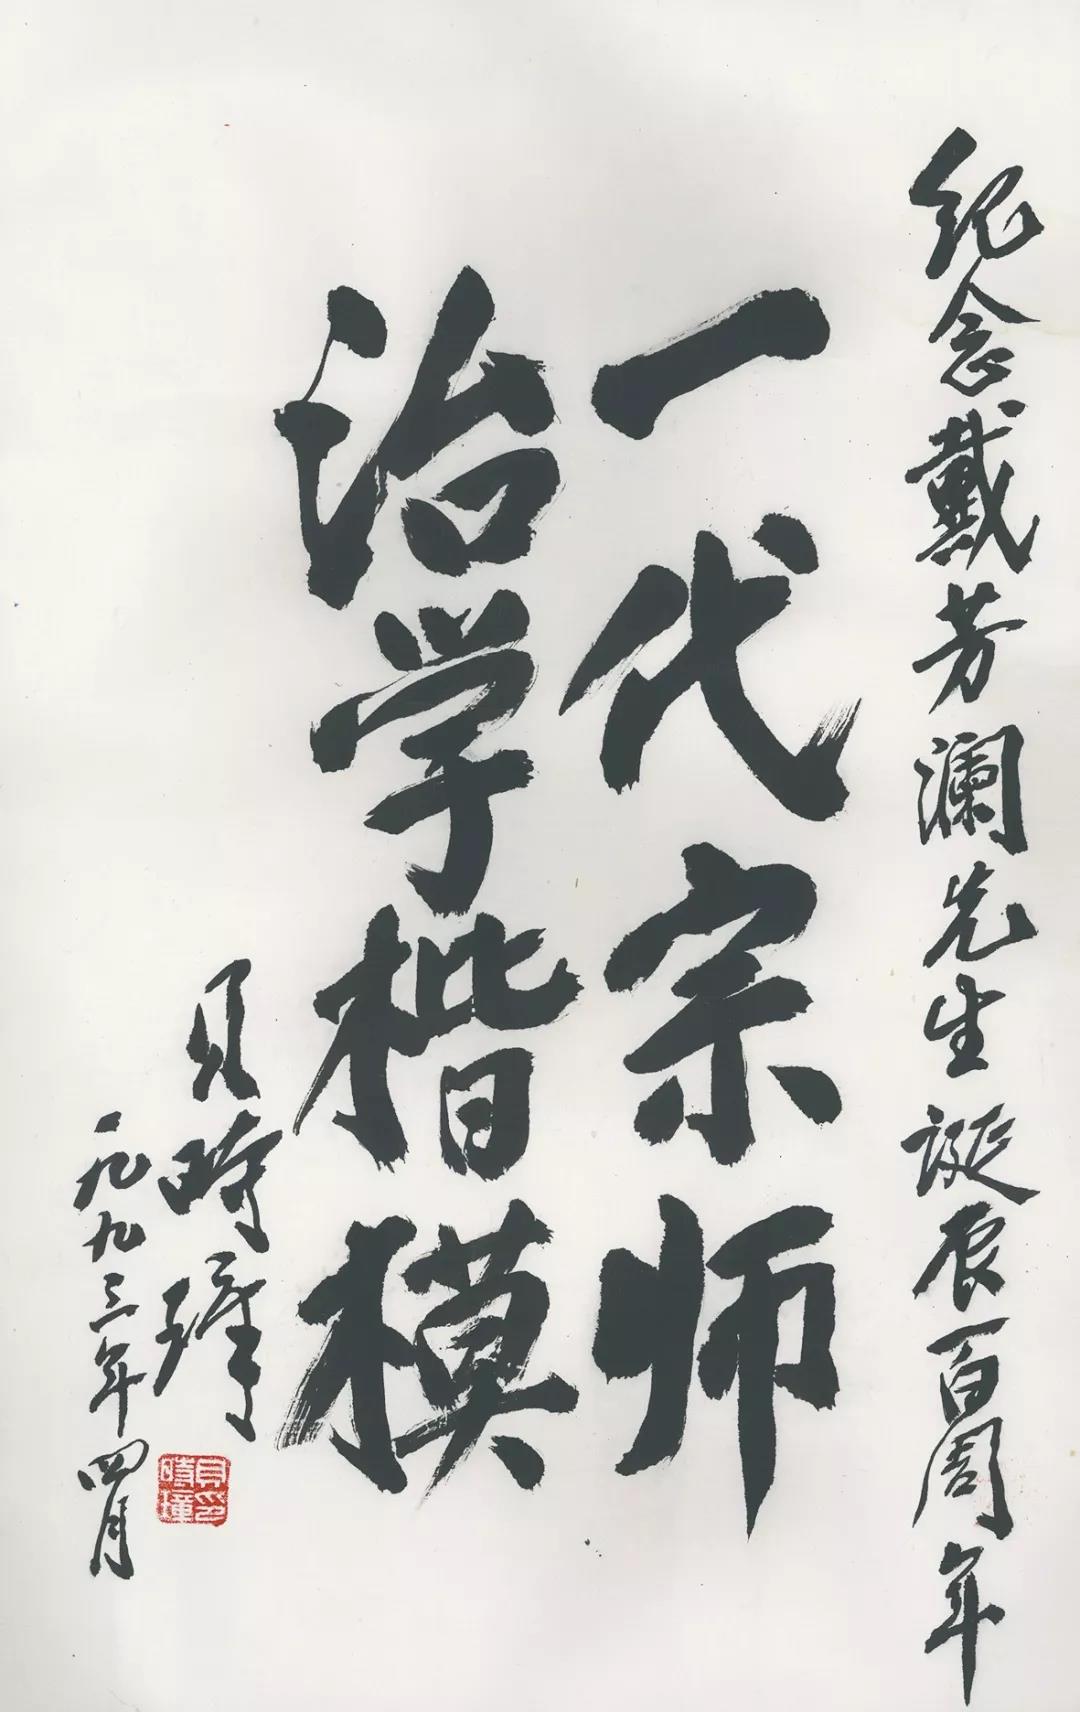 纪念戴芳澜先生诞辰百周年
一代宗师
治学楷模
贝时璋
一九九三年四月
贝印时璋